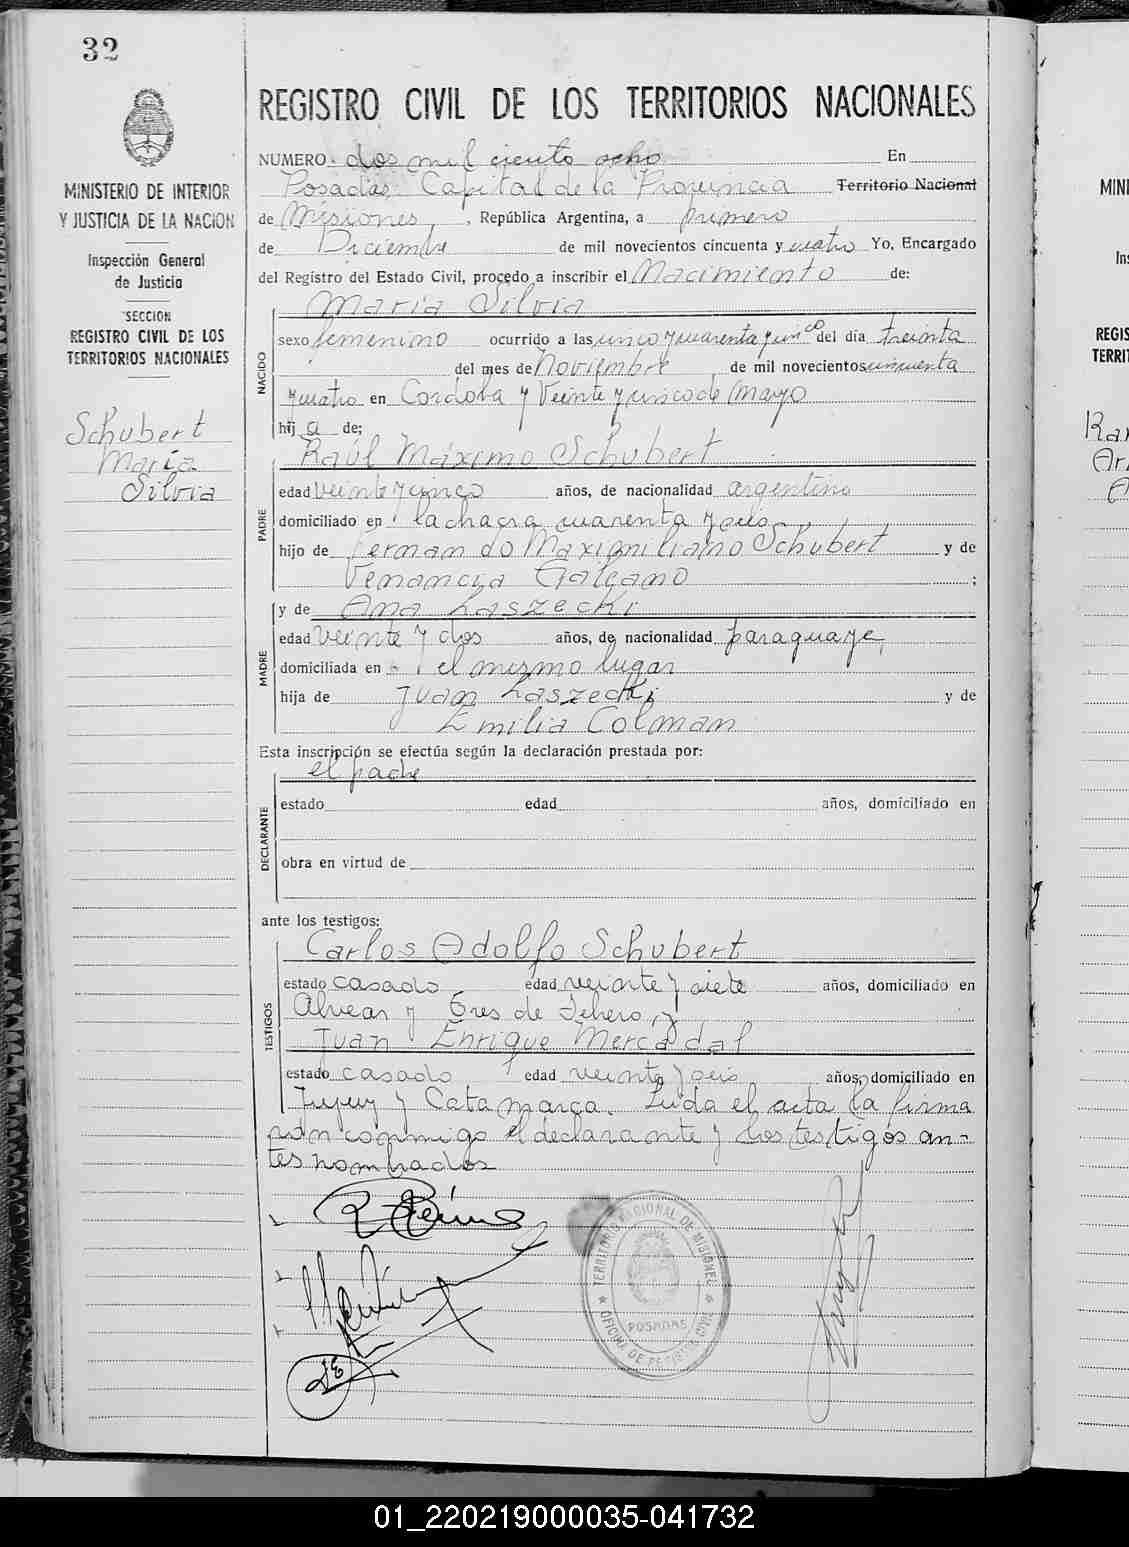 32
MINISTERIO DE INTERIOR
Y JUSTICIA DE LA NACION
Inspección General
de Justicia
SECCION
REGISTRO CIVIL DE LOS
TERRITORIOS NACIONALES
Schubert
María
Silvia
REGISTRO CIVIL DE LOS TERRITORIOS NACIONALES
NUMERO dos mil ciento ocho En
Posadas, Capital de la Provincia Territorio Nacional
de Misiones, República Argentina, a primero
de Diciembre de mil novecientos cincuenta y cuatro Yo, Encargado
del Registro del Estado Civil, procedo a inscribir el Nacimiento de:
María Silvia
NACIDO
sexo femenino ocurrido a las cinco y cuarenta y cinco del día treinta
del mes de Noviembre de mil novecientos cincuenta
y cuatro en Cordoba y Veinte y cinco de Mayo
hij a de;
PADRE
Raúl Máximo Schubert
edad veinte y cinco años, de nacionalidad argentino
domiciliado en la chacra cuarenta y seis
hijo de Fernando Maximiliano Schubert y de
Venancia Galeano ;
MADRE
y de Ana Laszecki
edad veinte y dos años, de nacionalidad paraguaya,
domiciliada en el mismo lugar
hija de Juan Laszecki y de
Emilia Colman
Esta inscripción se efectúa según la declaración prestada por:
el padre
DECLARANTE
estado edad años, domiciliado en
obra en virtud de
ante los testigos:
TESTIGOS
Carlos Adolfo Schubert
estado casado edad veinte y siete años, domiciliado en
Alvear y Tres de Febrero, y
Juan Enrique Mercadal
estado casado edad veinte y seis años, domiciliado en
Jujuy y Catamarca. Leída el acta la firma
ron conmigo el declarante y los testigos an-
tes nombrados
TERRITORIO NACIONAL DE MISIONES
POSADAS
MINI
Ins
REGIS
TERRIT
01_220219000035-041732